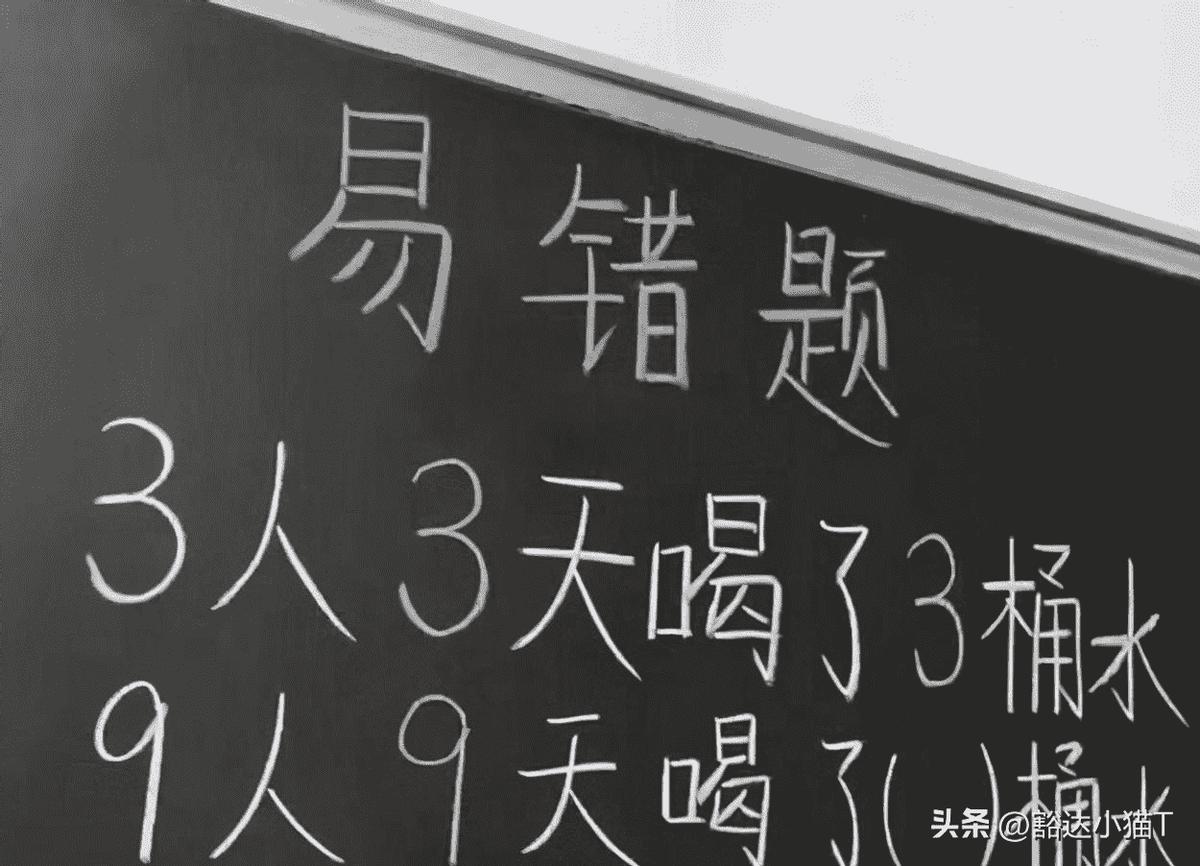 易错题
3人3天喝了3桶水
9人9天喝了( )桶水
头条 @豁达小猫T